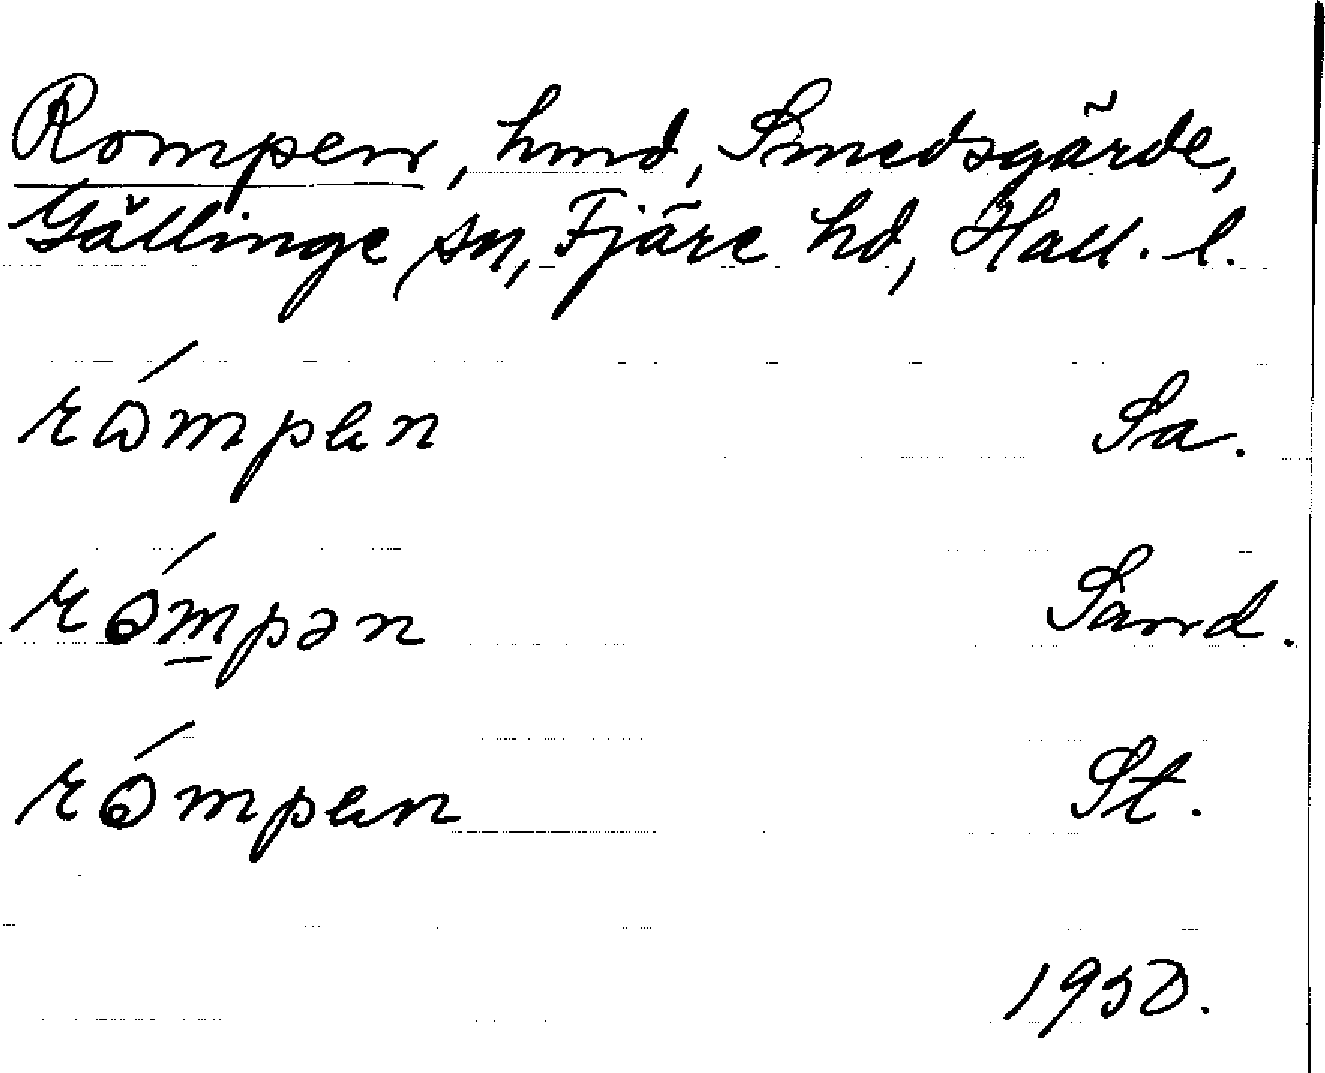 Rompen, hmd, Smedsgärde,
Gällinge sn, Fjäre hd, Hall. l.
rómpen Sa.
rómpən Sand.
rómpen St.
1950.